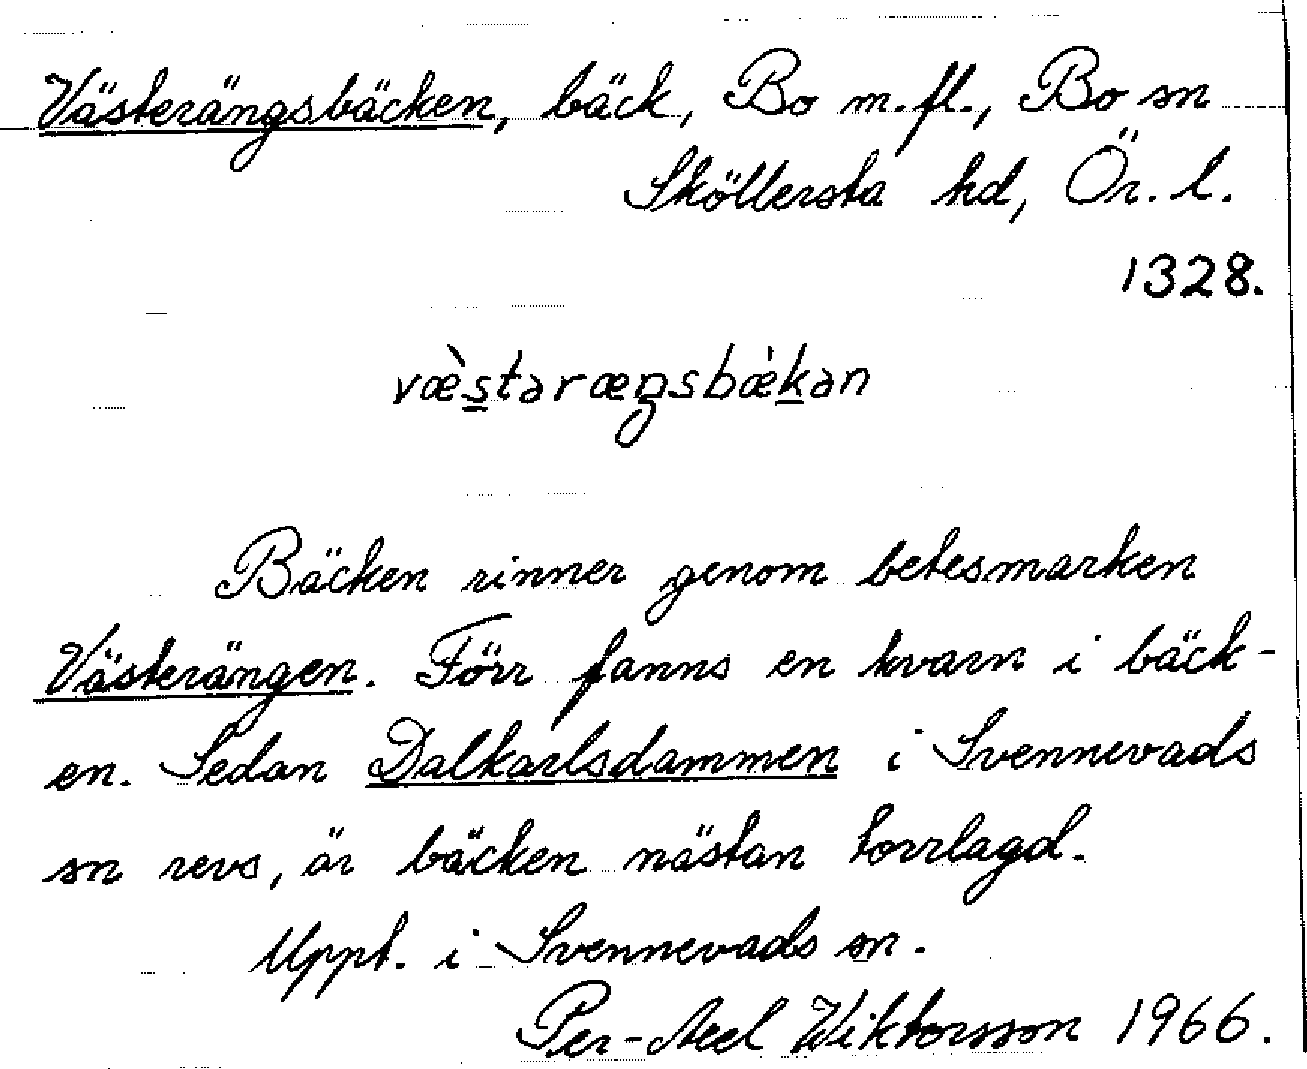 Västerängsbäcken, bäck, Bo m.fl., Bo sn
Sköllersta hd, Ör. l.
1328.
væ̀stəræŋsbæ̀kən
Bäcken rinner genom betesmarken
Västerängen. Förr fanns en kvarn i bäck-
en. Sedan Dalkarlsdammen i Svennevads
sn revs, är bäcken nästan torrlagd.
Uppt. i Svennevads sn.
Per-Axel Wiktorsson 1966.